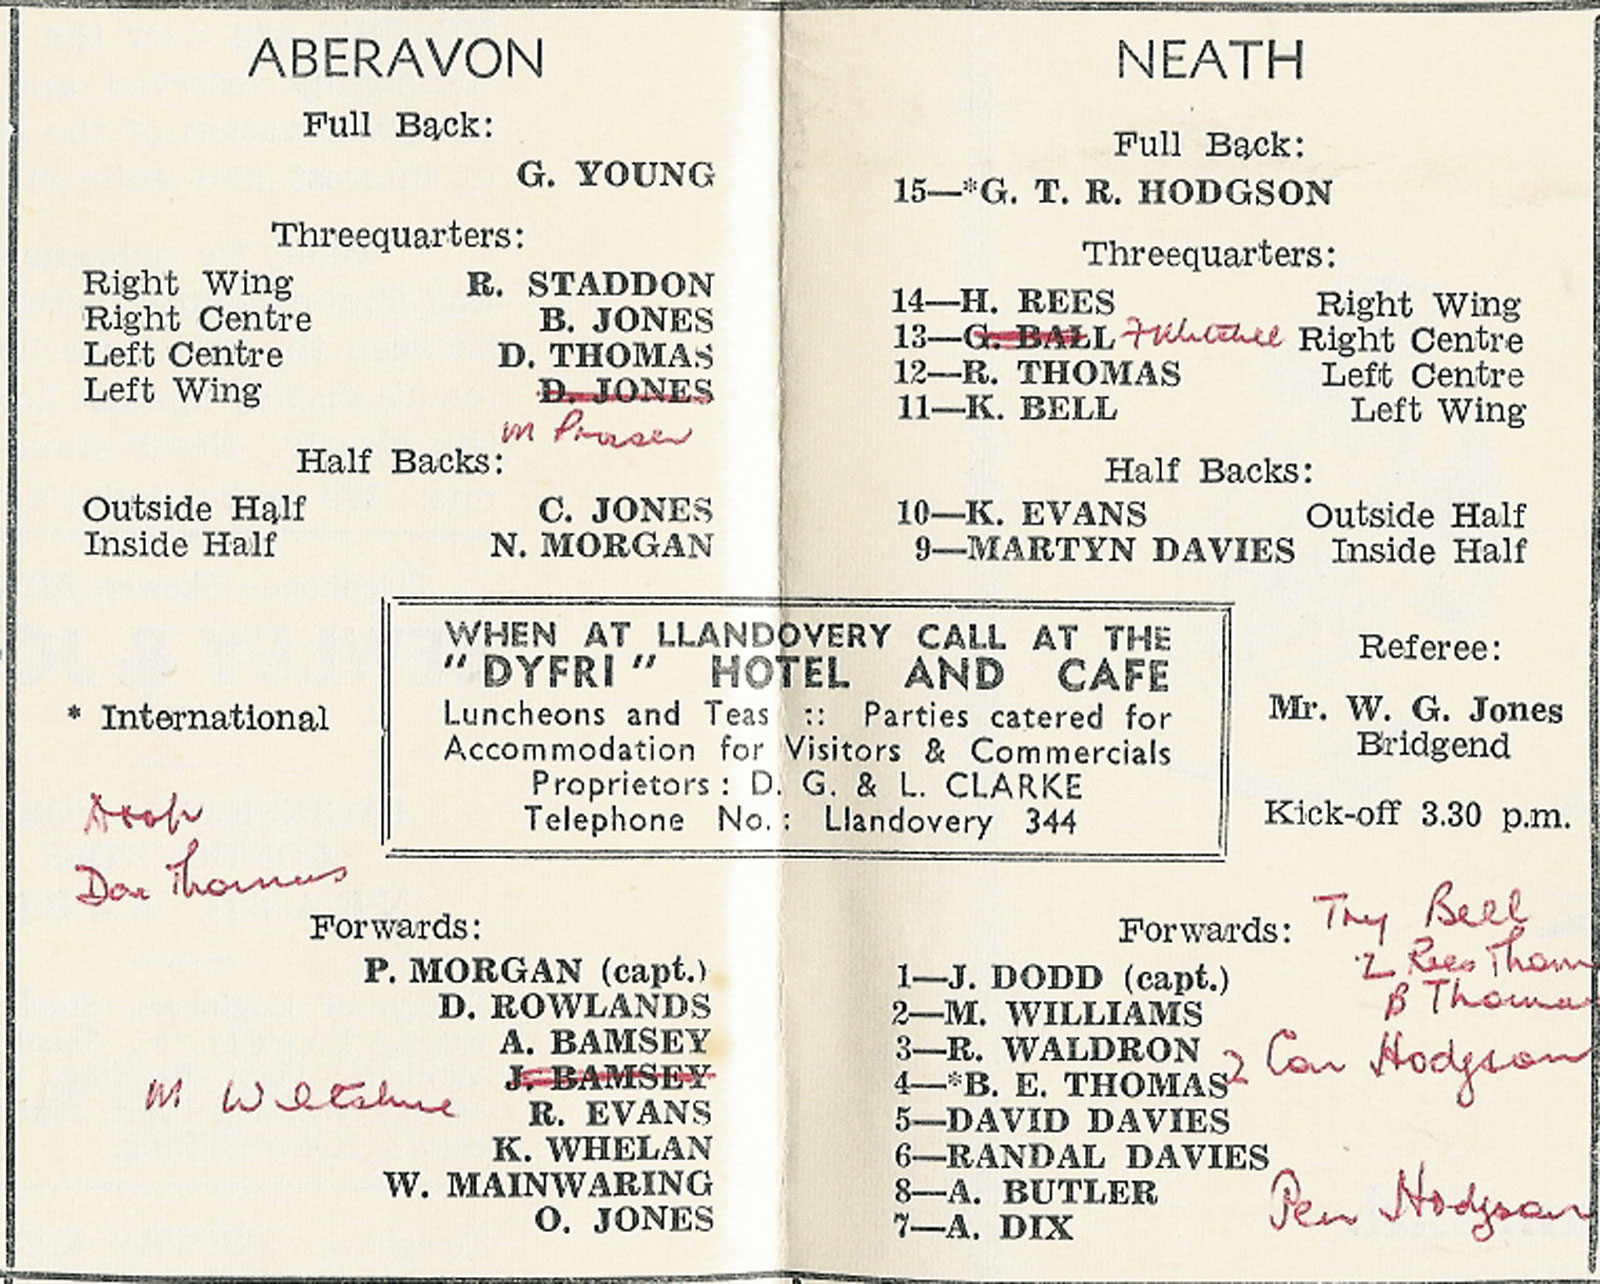 ABERAVON
Full Back:
G. YOUNG
Threequarters:
Right Wing R. STADDON
Right Centre B. JONES
Left Centre D. THOMAS
Left Wing D. JONES
M Prosser
Half Backs:
Outside Half C. JONES
Inside Half N. MORGAN
NEATH
Full Back:
15—*G. T. R. HODGSON
Threequarters:
14—H. REES Right Wing
13—G. BALL Right Centre
12—R. THOMAS Left Centre
11—K. BELL Left Wing
Half Backs:
10—K. EVANS Outside Half
9—MARTYN DAVIES Inside Half
WHEN AT LLANDOVERY CALL AT THE
"DYFRI" HOTEL AND CAFE
Luncheons and Teas :: Parties catered for
Accommodation for Visitors & Commercials
Proprietors: D. G. & L. CLARKE
Telephone No.: Llandovery 344
* International
Referee:
Mr. W. G. Jones
Bridgend
Kick-off 3.30 p.m.
Drop
Thomas
Forwards:
P. MORGAN (capt.)
D. ROWLANDS
A. BAMSEY
J. BAMSEY
M Wiltshire
R. EVANS
K. WHELAN
W. MAINWARING
O. JONES
Forwards:
1—J. DODD (capt.)
2—M. WILLIAMS
3—R. WALDRON
4—*B. E. THOMAS
5—DAVID DAVIES
6—RANDAL DAVIES
8—A. BUTLER
7—A. DIX
Try Bell
2 Rees Thom
B Thomas
2 Con Hodgson
Pen Hodgson